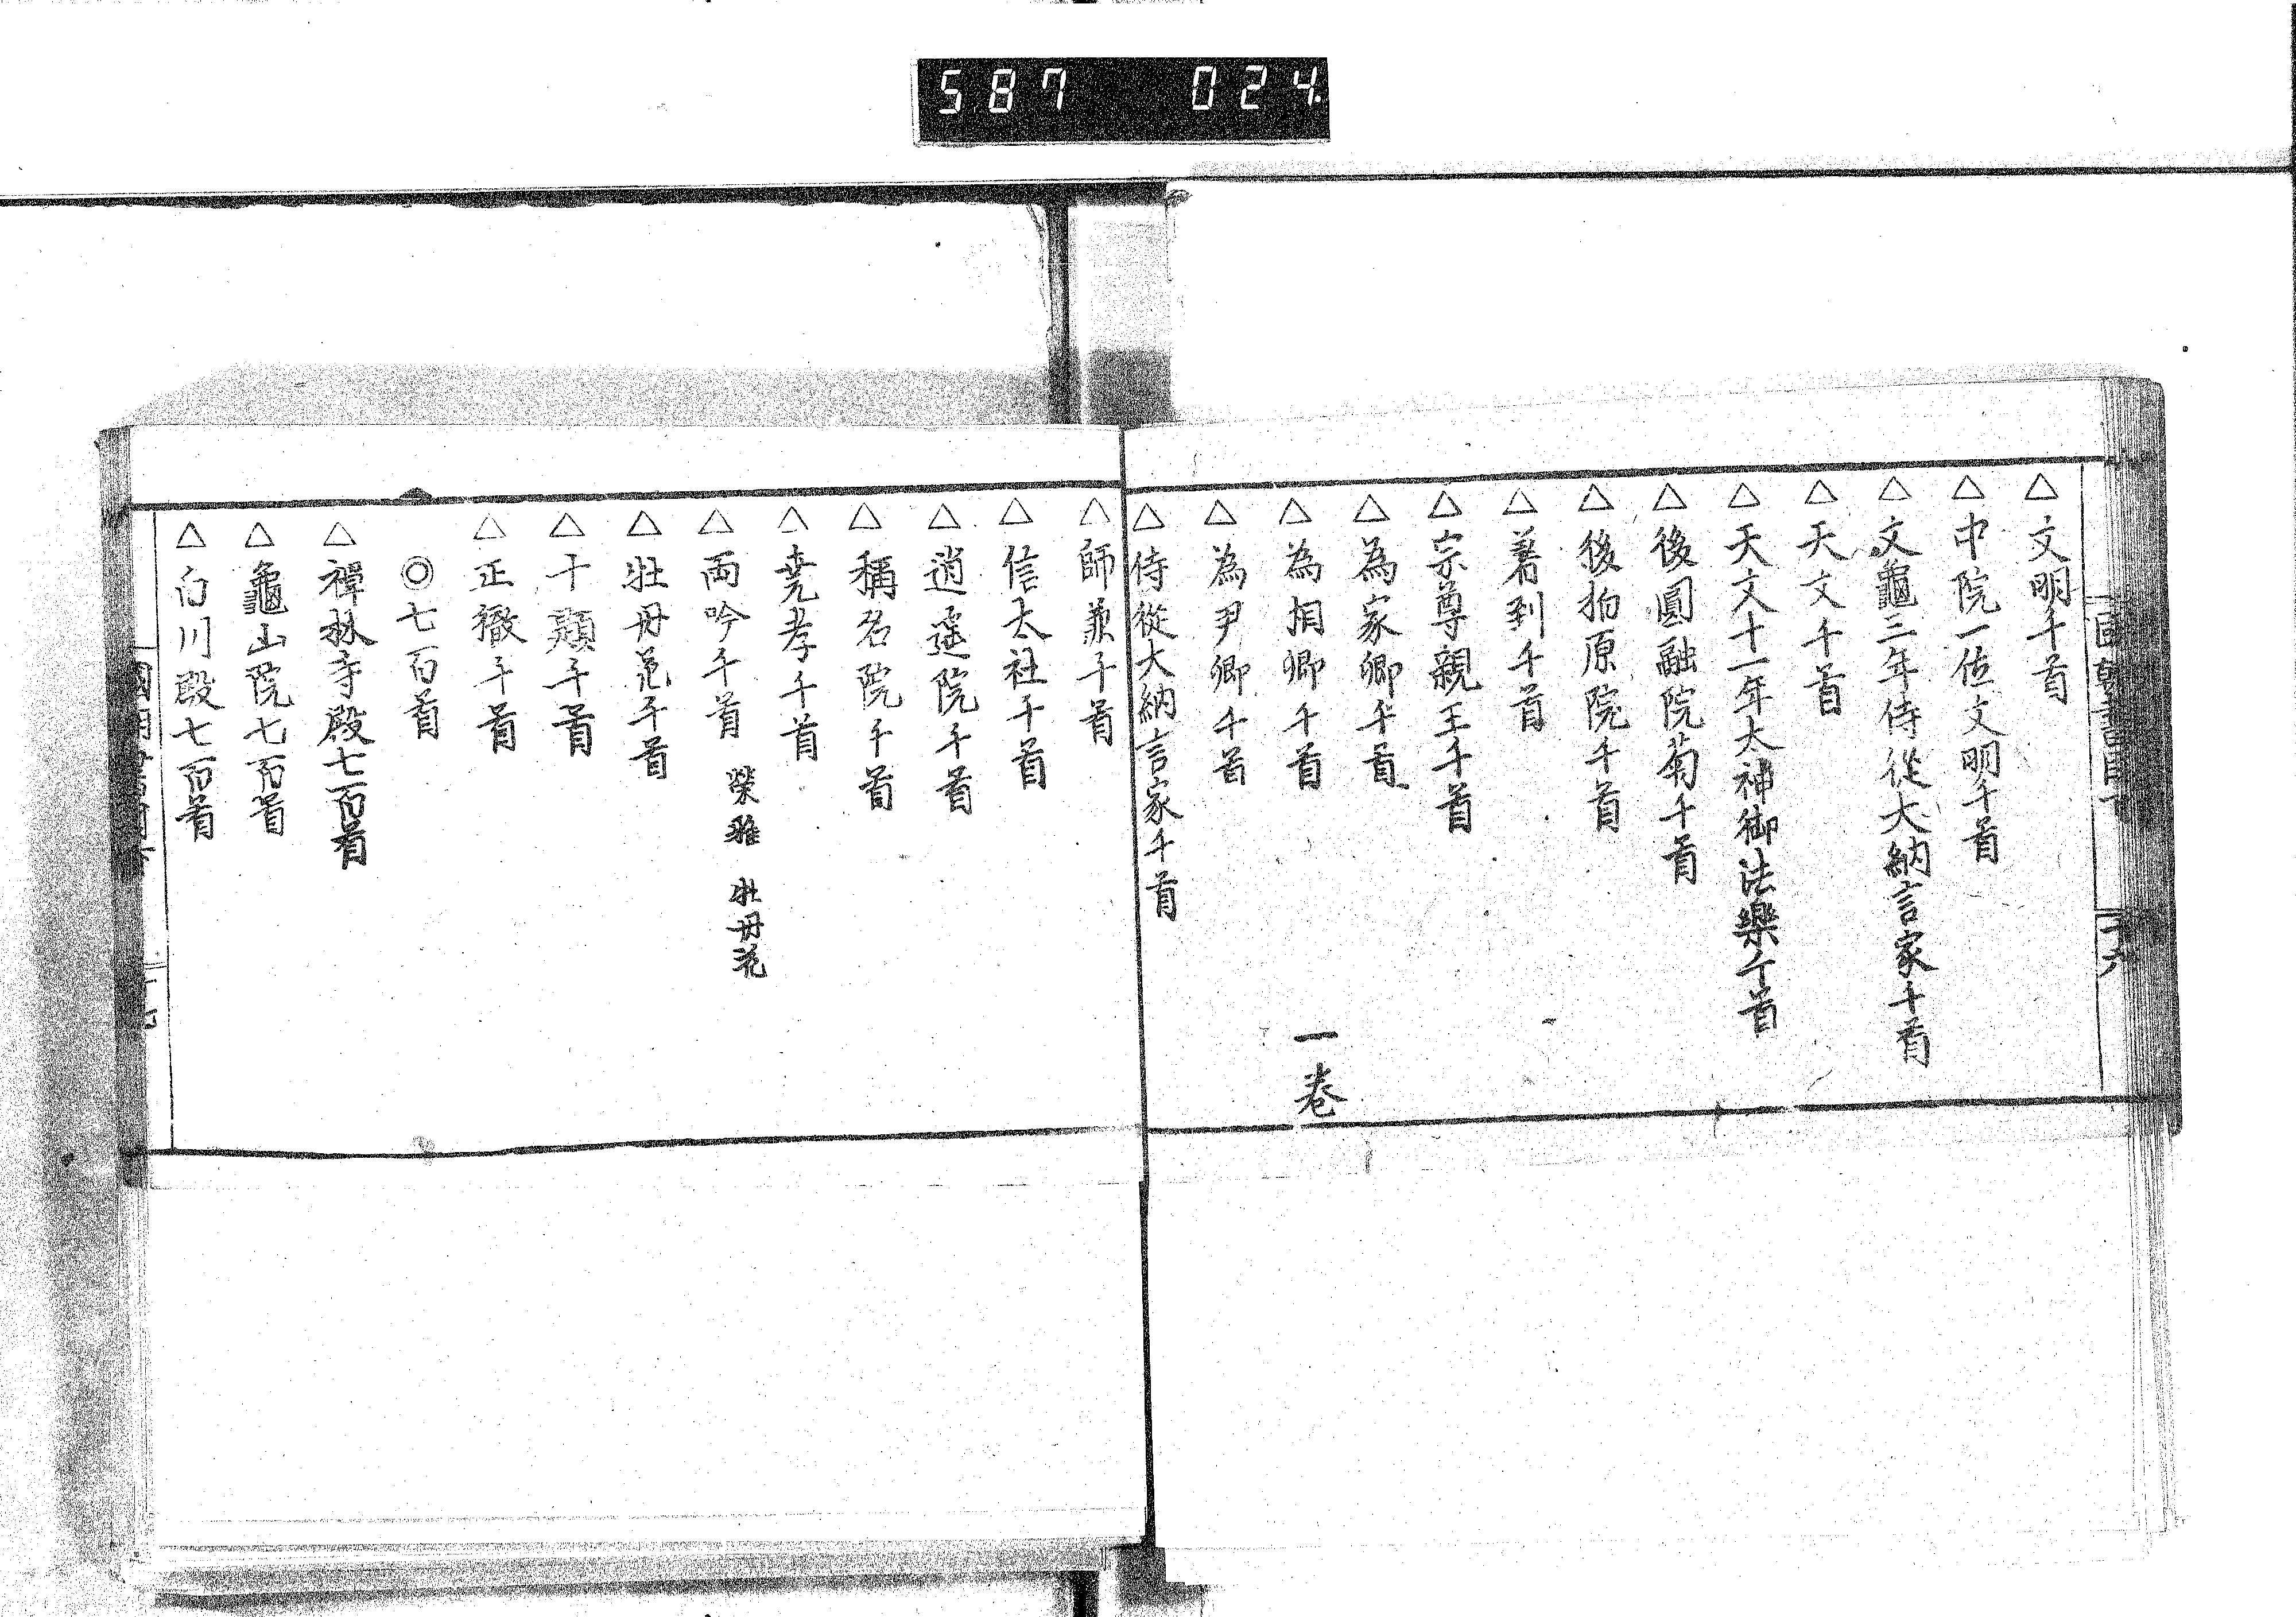 587 024
△文明千首
△中院一位文明千首
△文龜三年侍從大納言家千首
△天文千首
△天文十一年太神御法樂千首
△後圓融院菊千首
△後柏原院千首
△著到千首
△宗尊親王千首
△為家卿千首
△為相卿千首 一卷
△為尹卿千首
△侍從大納言家千首
△師兼千首
△信太社千首
△逍遥院千首
△稱名院千首
△尭孝千首
△両吟千首 榮雅 牡丹花
△牡丹花千首
△十題千首
△正徹千首
◎七百首
△禪林寺殿七百首
△龜山院七百首
△白川殿七百首